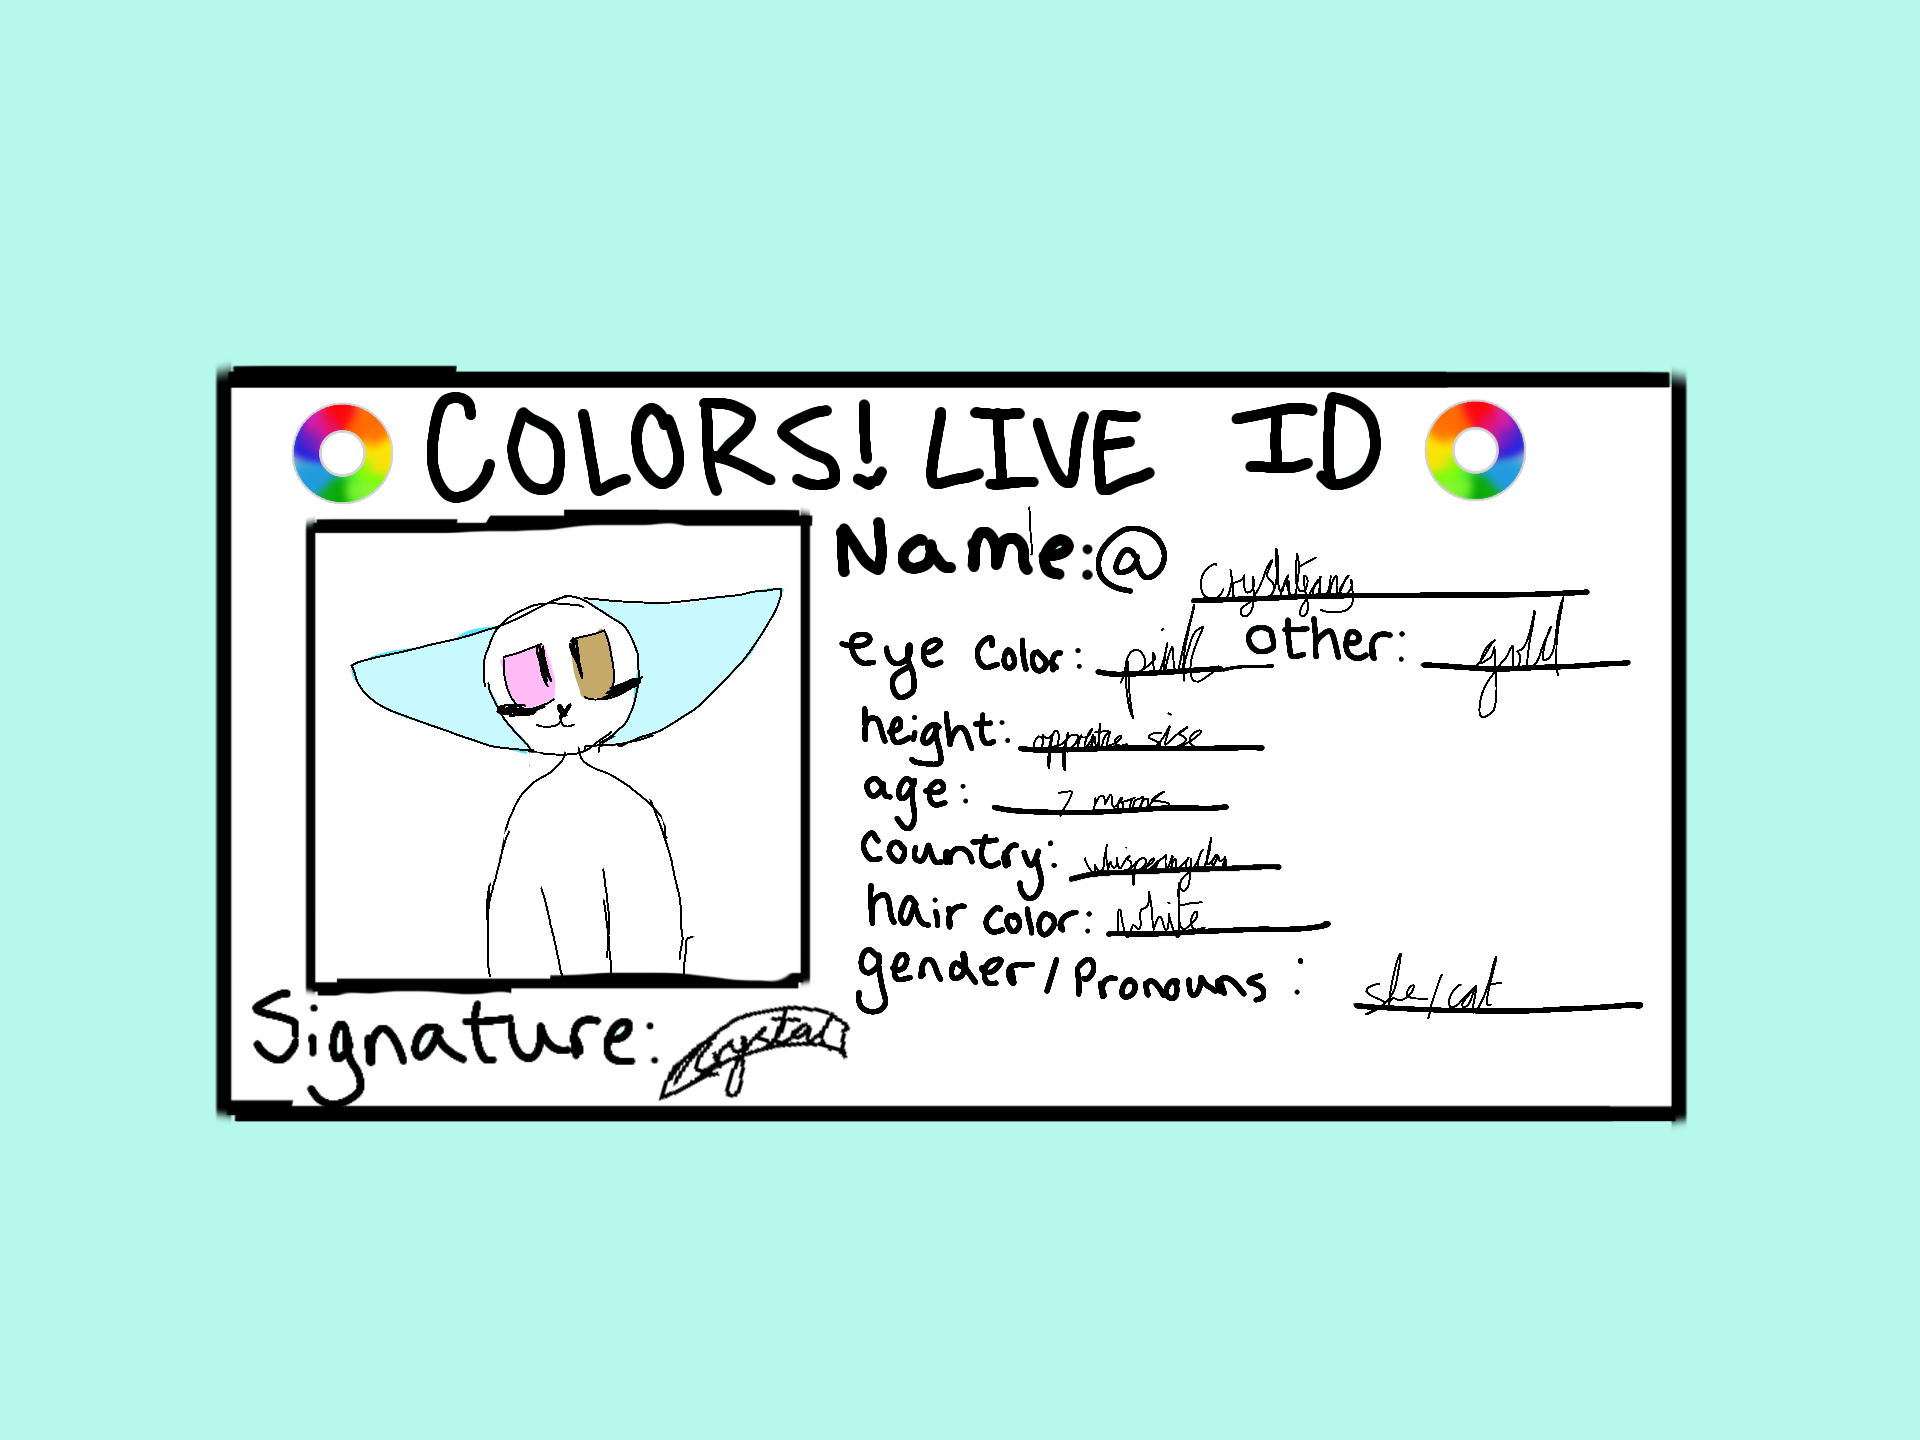 COLORS! LIVE ID
Name:@ Crystalfang
eye color: pink other: gold
height: sise
age: 7 moons
country: whisperingclan
hair color: white
gender/Pronouns : she/cat
Signature: Crystal